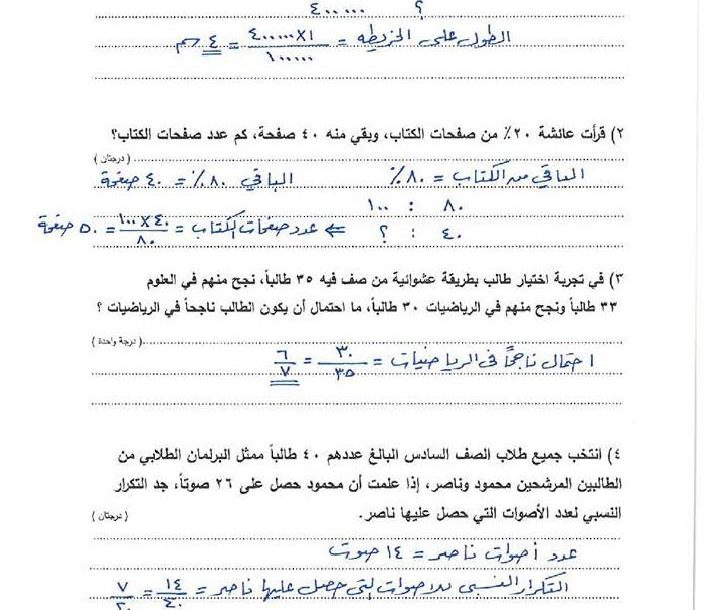 ؟ ٤٠٠٠٠٠
الطول على الخريطه = ٤٠٠٠٠٠×١ / ١٠٠٠٠٠ = ٤ سم
٢) قرأت عائشة ٢٠٪ من صفحات الكتاب، وبقي منه ٤٠ صفحة، كم عدد صفحات الكتاب؟
(درجتان)
الباقي من الكتاب = ٨٠٪ الباقي ٨٠٪ = ٤٠ صفحة
٨٠ : ١٠٠
٤٠ : ؟ ⇐ عدد صفحات الكتاب = ٤٠×١٠٠ / ٨٠ = ٥٠ صفحة
٣) في تجربة اختيار طالب بطريقة عشوائية من صف فيه ٣٥ طالباً، نجح منهم في العلوم
٣٣ طالباً ونجح منهم في الرياضيات ٣٠ طالباً، ما احتمال أن يكون الطالب ناجحاً في الرياضيات ؟
(درجة واحدة)
احتمال ناجحاً في الرياضيات = ٣٠ / ٣٥ = ٦ / ٧
٤) انتخب جميع طلاب الصف السادس البالغ عددهم ٤٠ طالباً ممثل البرلمان الطلابي من
الطالبين المرشحين محمود وناصر، إذا علمت أن محمود حصل على ٢٦ صوتاً، جد التكرار
النسبي لعدد الأصوات التي حصل عليها ناصر. (درجتان)
عدد أصوات ناصر = ١٤ صوت
التكرار النسبي للاصوات التي حصل عليها ناصر = ١٤ / ٤٠ = ٧ / ٢٠